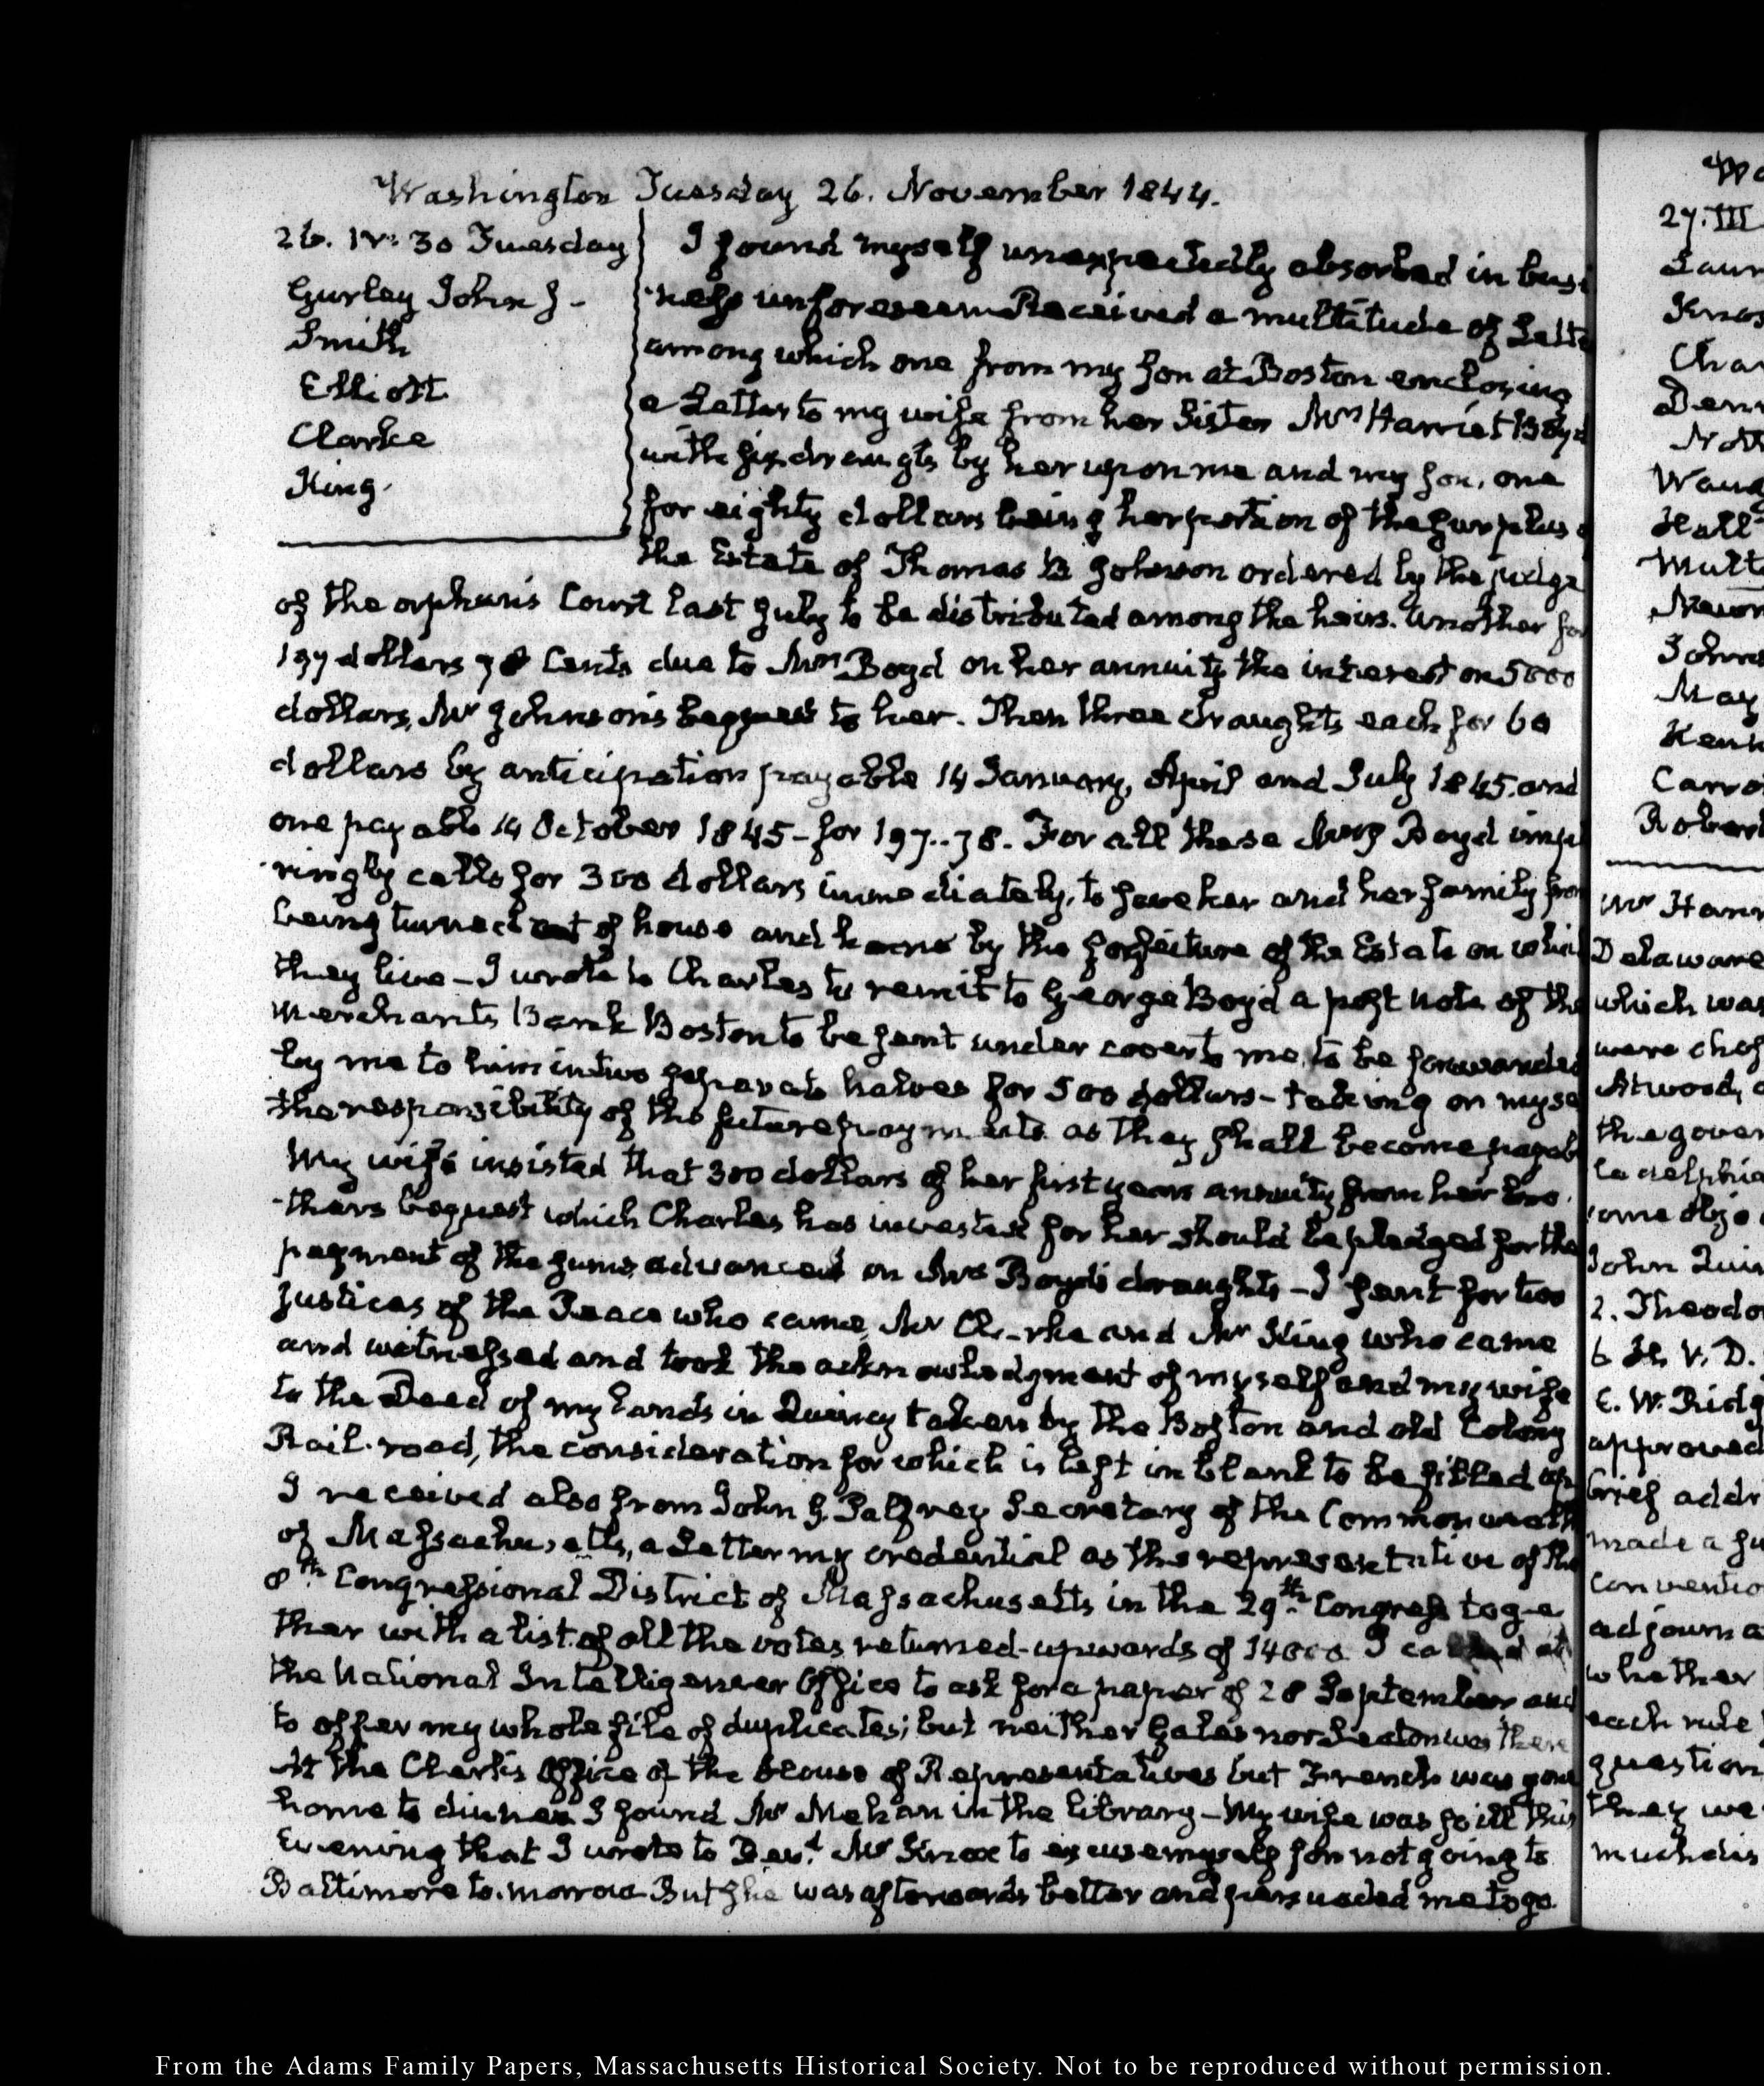 Washington Tuesday 26. November 1844.
26. IV: 30 Tuesday
Gurley John J -
Smith
Elliott
Clarke
King.
I found myself unexpectedly absorbed in busi
ness unforeseen Received a multitude of Lette
among which one from my Son at Boston enclosing
a Letter to my wife from her Sister Mrs Harriet Boyd
with six draughts by her upon me and my son, one
for eighty dollars being her portion of the surplus
the Estate of Thomas B Johnson ordered by the judge
of the orphan's Court last July to be distributed among the heirs. Another for
197 dollars 78 Cents due to Mrs Boyd on her annuity the interest on 5000
dollars, Mr Johnson's bequest to her. Then three draughts each for 60
dollars by anticipation payable 14 January, April and July 1845. and
one payable 14 October 1845 - for 197..78. For all these Mrs Boyd implo
ringly calls for 300 dollars immediately, to save her and her family from
being turned out of house and home by the forfeiture of the Estate on which
they live - I wrote to Charles to remit to George Boyd a post note of the
Merchants Bank Boston to be sent under cover to me, to be forwarded
by me to him in two separate halves for 500 dollars - taking on myse
the responsibility of the future payments as they shall become payab
My wife insisted that 300 dollars of her first years annuity from her bro
thers bequest which Charles has invested for her should be pledged for the
payment of the sums advanced on Mrs Boyd's draughts - I sent for two
Justices of the Peace who came, Mr Clarke and Mr King who came
and witnessed and took the acknowledgment of myself and my wife
to the Deed of my Lands in Quincy taken by the Boston and old Colony
Rail-road, the consideration for which is left in blank to be filled up
I received also from John G. Palfrey Secretary of the Commonwealth
of Massachusetts, a Letter my credential as the representative of the
8th Congressional District of Massachusetts in the 29th Congress toge
ther with a list of all the votes returned - upwards of 14000 I called at
the National Intelligencer Office to ask for a paper of 28 September and
to offer my whole file of duplicates; but neither Gales nor Seaton was there
At the Clerk's Office of the House of Representatives but French was gone
home to dinner I found Mr Mehan in the library - My wife was so ill this
Evening that I wrote to Revd. Mr Knox to excuse myself for not going to
Baltimore to-morrow But she was afterwards better and persuaded me to go.
27. III
Mr
Delaware
which was
were chos
Atwood,
the gover
ladelphia
some
John Quin
2. Theodo
6 H. V. D.
E. W. Ridg
approved
brief addr
made a
conventio
adjourn
whether
each rule
question
they we
much
From the Adams Family Papers, Massachusetts Historical Society. Not to be reproduced without permission.